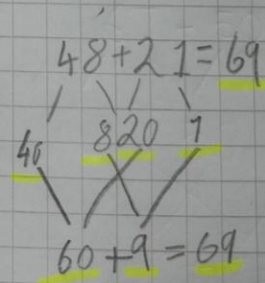 48+21=69
40 8 20 1
60+9=69